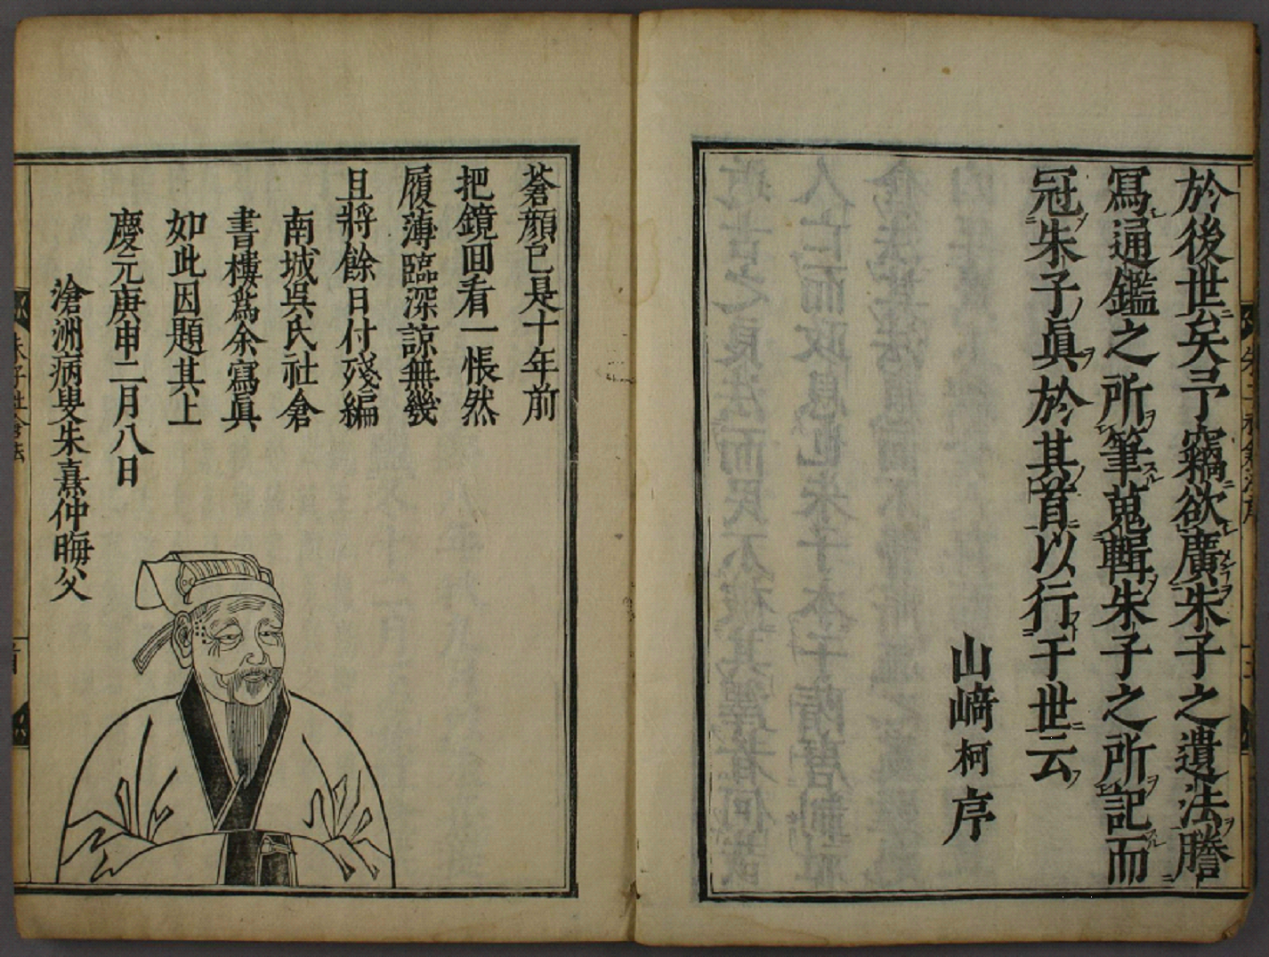 於後世矣予竊欲廣朱子之遺法謄
冩通鑑之所筆蒐輯朱子之所記而
冠朱子眞於其首以行于世云
山﨑柯序
蒼顏已是十年前
把鏡囬看一悵然
履薄臨深諒無幾
且將餘日付殘編
南城吳氏社倉
書樓爲余寫眞
如此因題其上
慶元庚申二月八日
滄洲病叟朱熹仲晦父
朱子社倉法